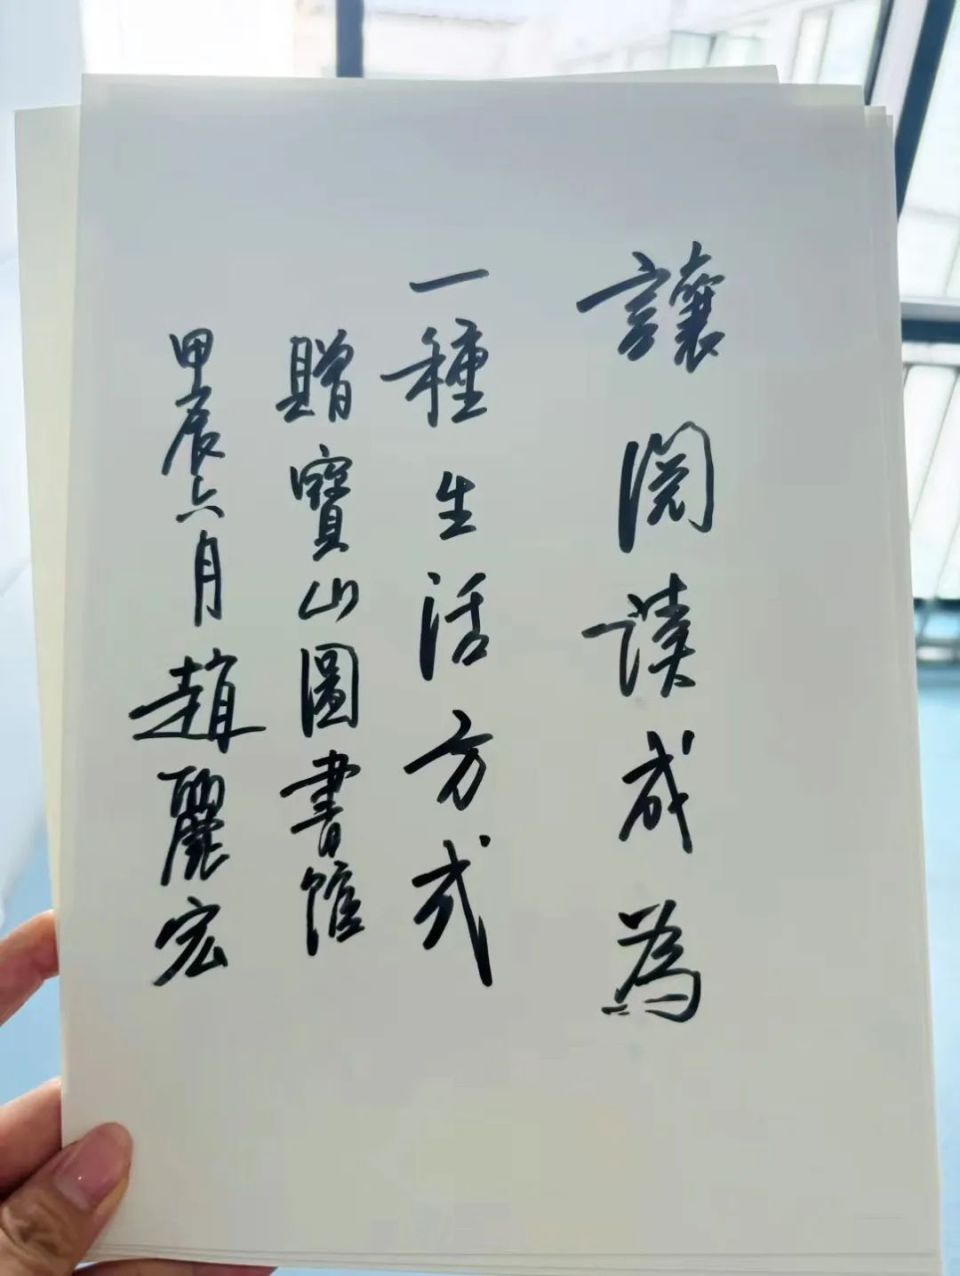 讓閱讀成為
一種生活方式
贈寶山圖書館
甲辰六月趙麗宏